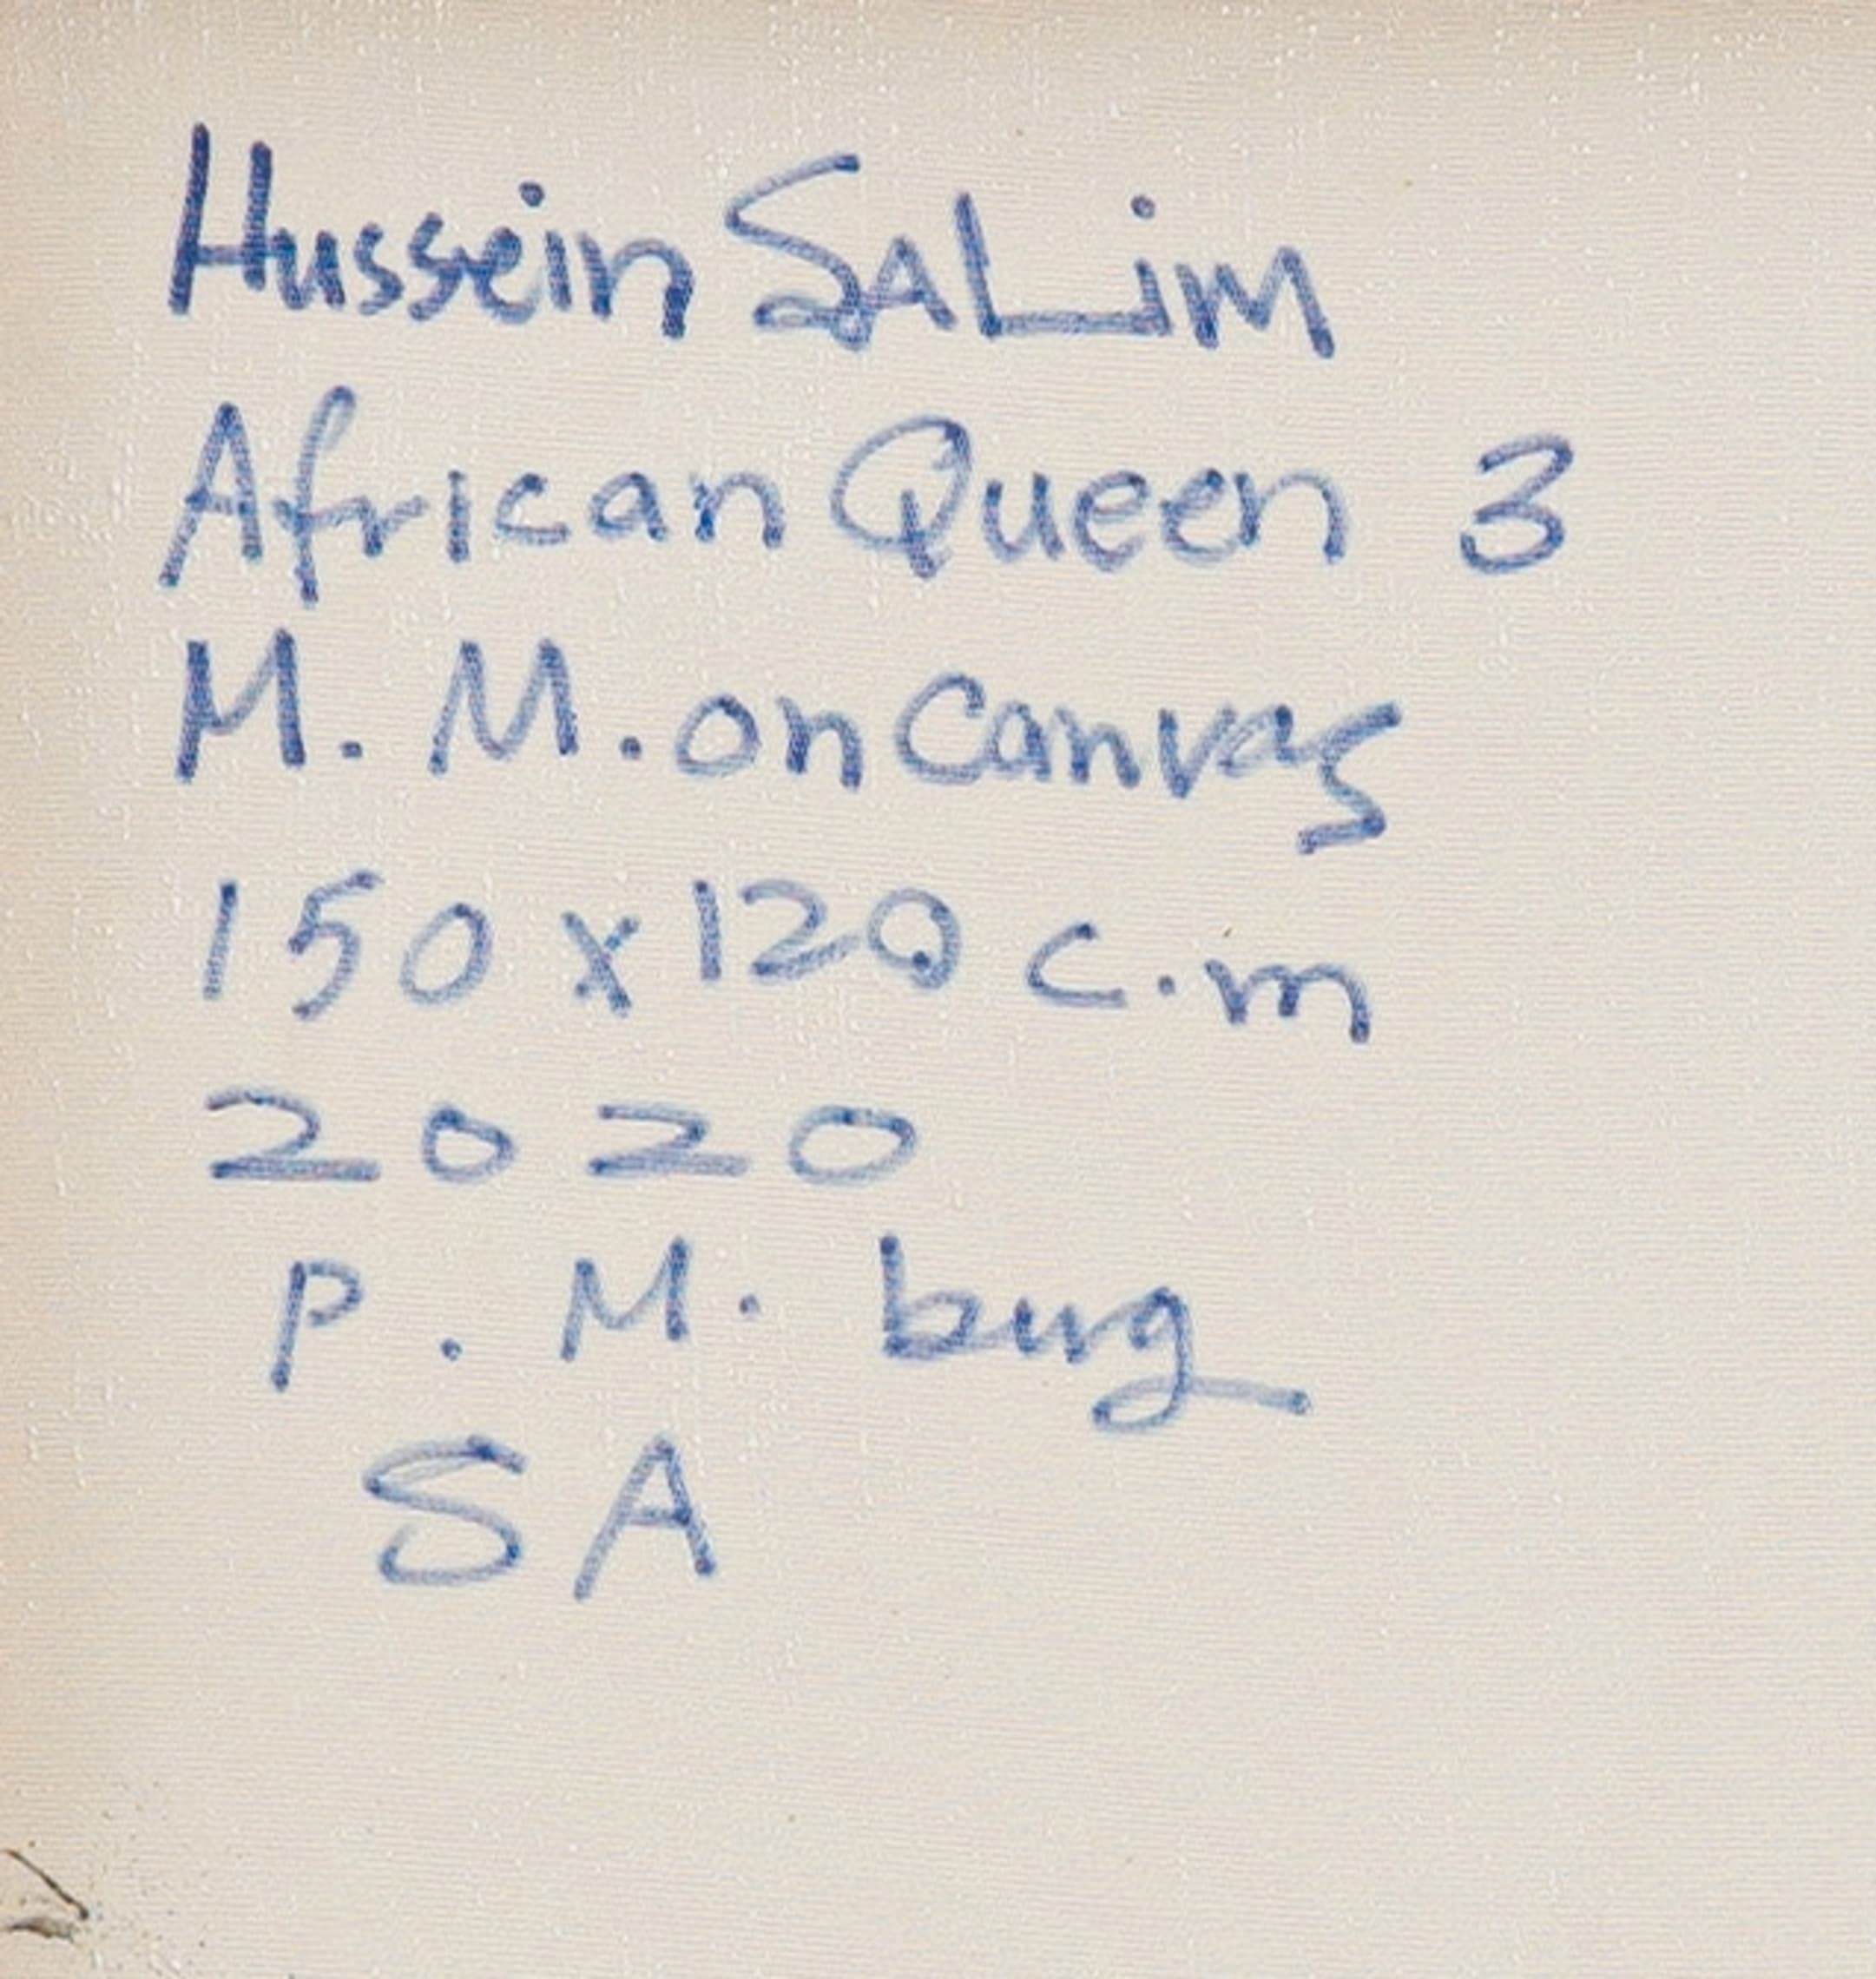 Hussein SALiM
African Queen 3
M. M. on Canvas
150 x 120 c.m
2020
P. M. burg
SA